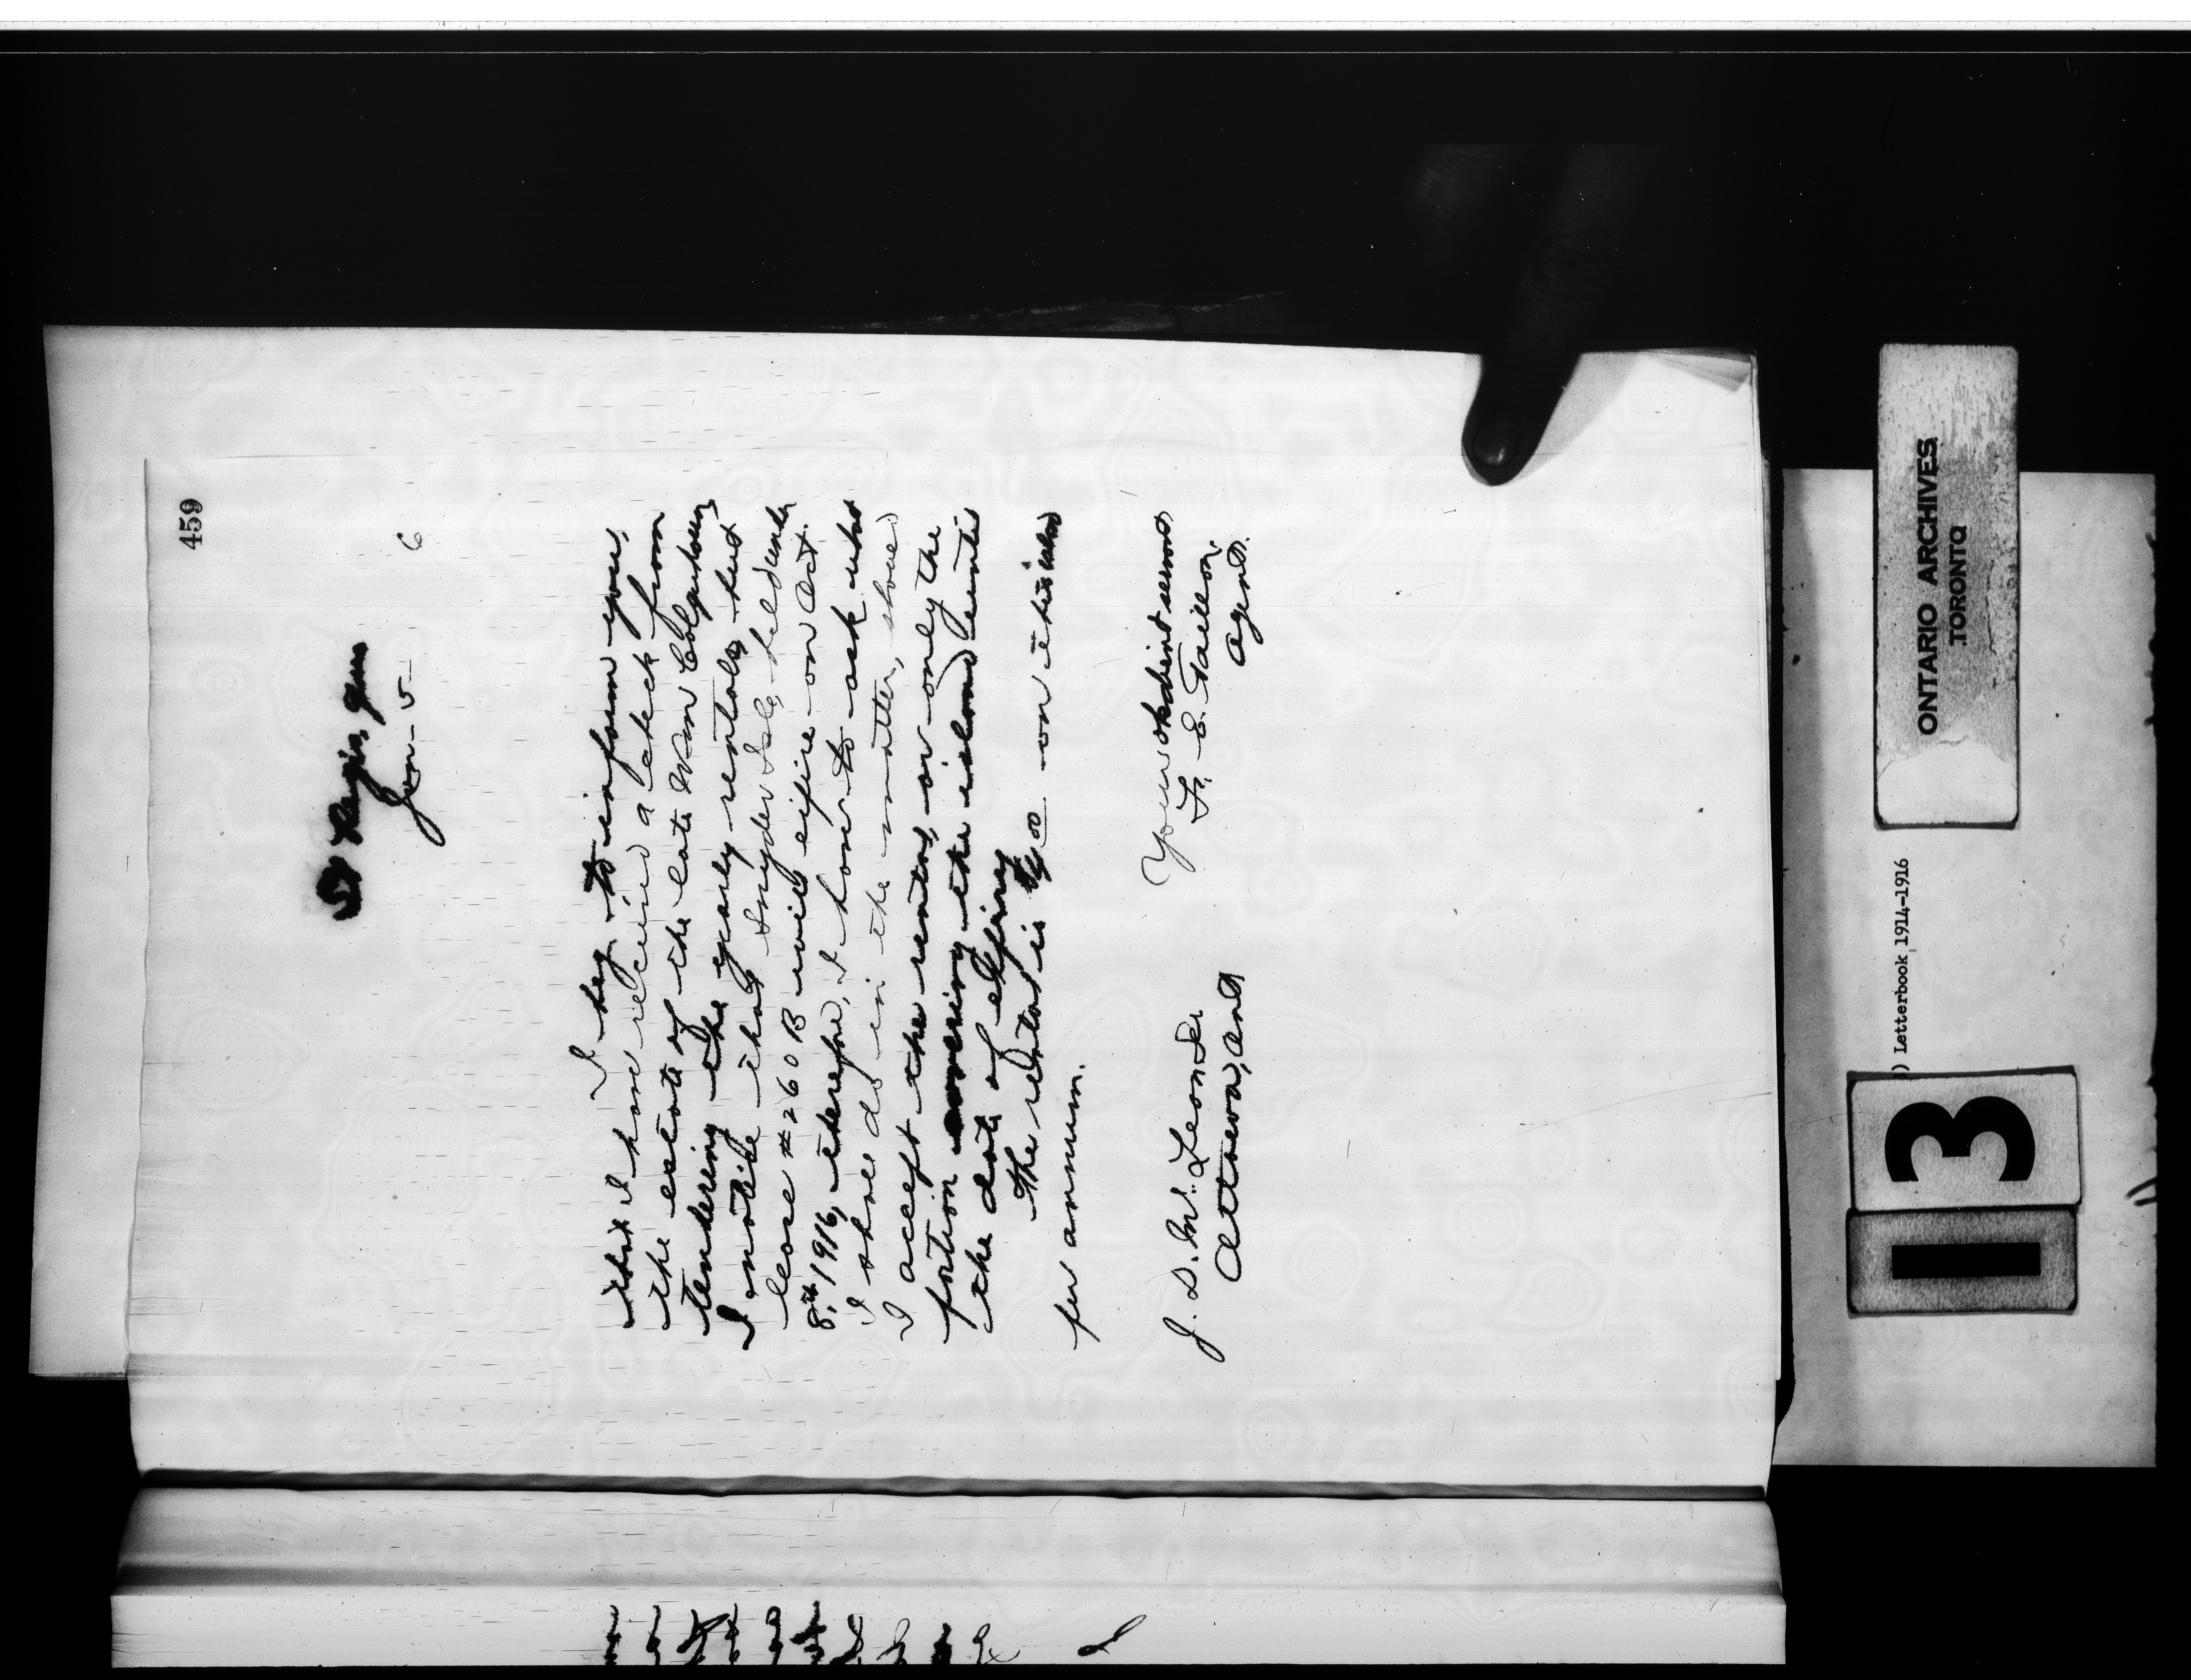 459
St Regis, Que
Jan - 5 - 6
I beg to inform you,
that I have received a check from
the estate of the late Wm Colquhoun
tendering the yearly rentals, but
I notice that Snyder Isle, held under
lease #260 B will expire on Oct.
8th, 1916, therefore, I have to ask what
I shall do in the matter, should
I accept the rental, or only the
portion covering the island until
the date of expiring
The rental is 00 on this island
per annum.
Your obedient servant
F. E. Taillon,
Agent.
J. D. McLean Sr
Ottawa, Ont
ONTARIO ARCHIVES
TORONTO
) Letterbook, 1914-1916
13